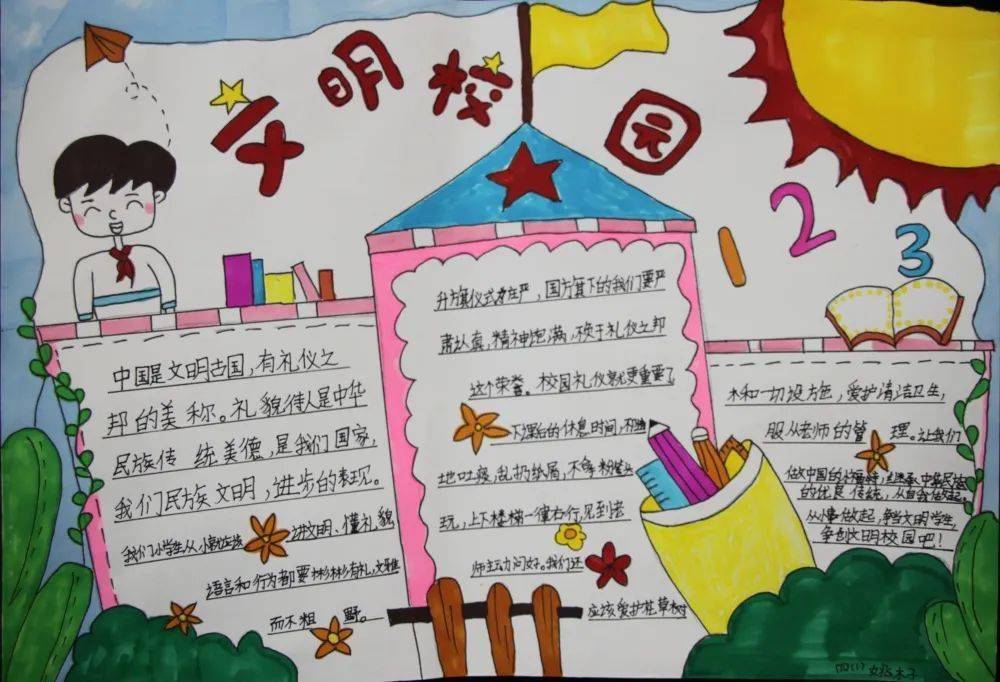 文明校园
1 2 3
中国是文明古国，有礼仪之
邦的美称。礼貌待人是中华
民族传统美德，是我们国家，
我们民族文明，进步的表现。
我们小学生从小就应该讲文明、懂礼貌
语言和行为都要彬彬有礼，文雅
而不粗野。
升旗仪式庄严，国旗下的我们要严
肃认真，精神饱满，不愧于礼仪之邦
这个荣誉。校园礼仪就更重要了
下课后的休息时间，不随
地吐痰，乱扔纸屑，不拿粉笔头
玩，上下楼梯一律右行，见到老
师主动问好。我们还
应该爱护花草树
木和一切设施，爱护清洁卫生，
服从老师的管理。让我们
做中国的，继承中华民族
的优良传统，从自我做起。
从小事做起，争当文明学生，
争创文明校园吧！
四(1)